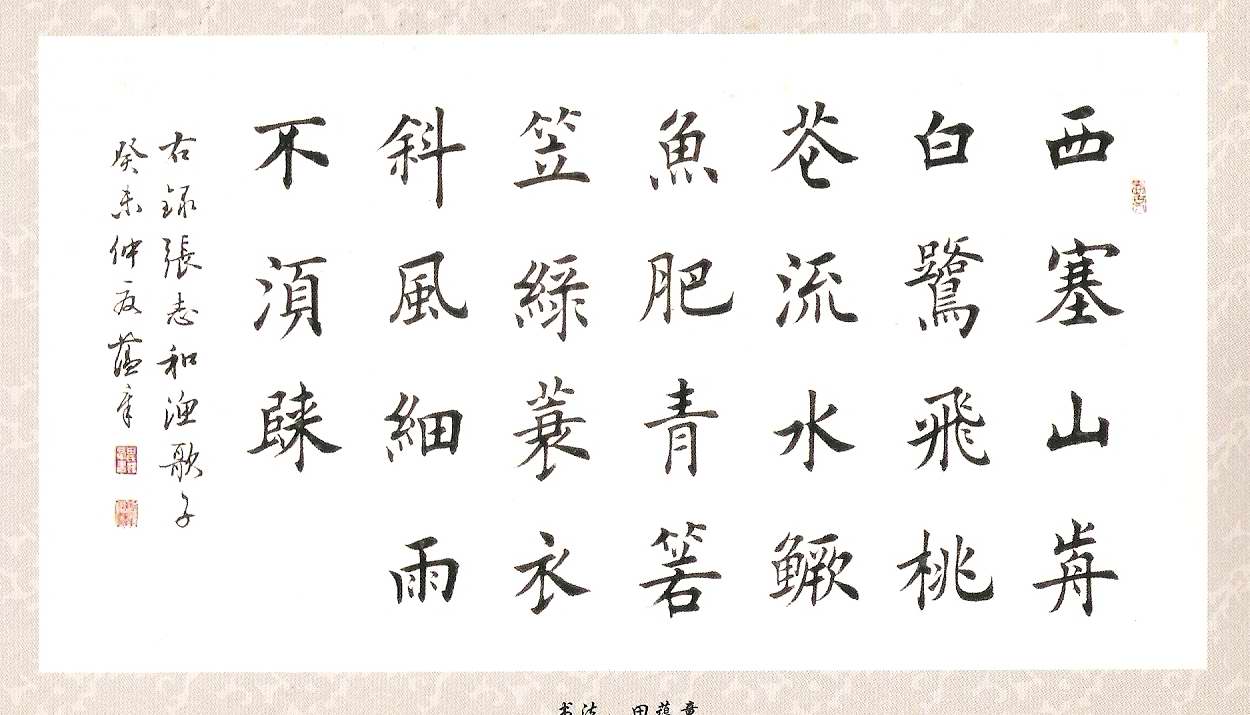 西塞山歬
白鷺飛桃
花流水鱖
魚肥青箬
笠緑蓑衣
斜風細雨
不湏歸
右録張志和漁歌子
癸未仲夏蘊章
书法 田蕴章